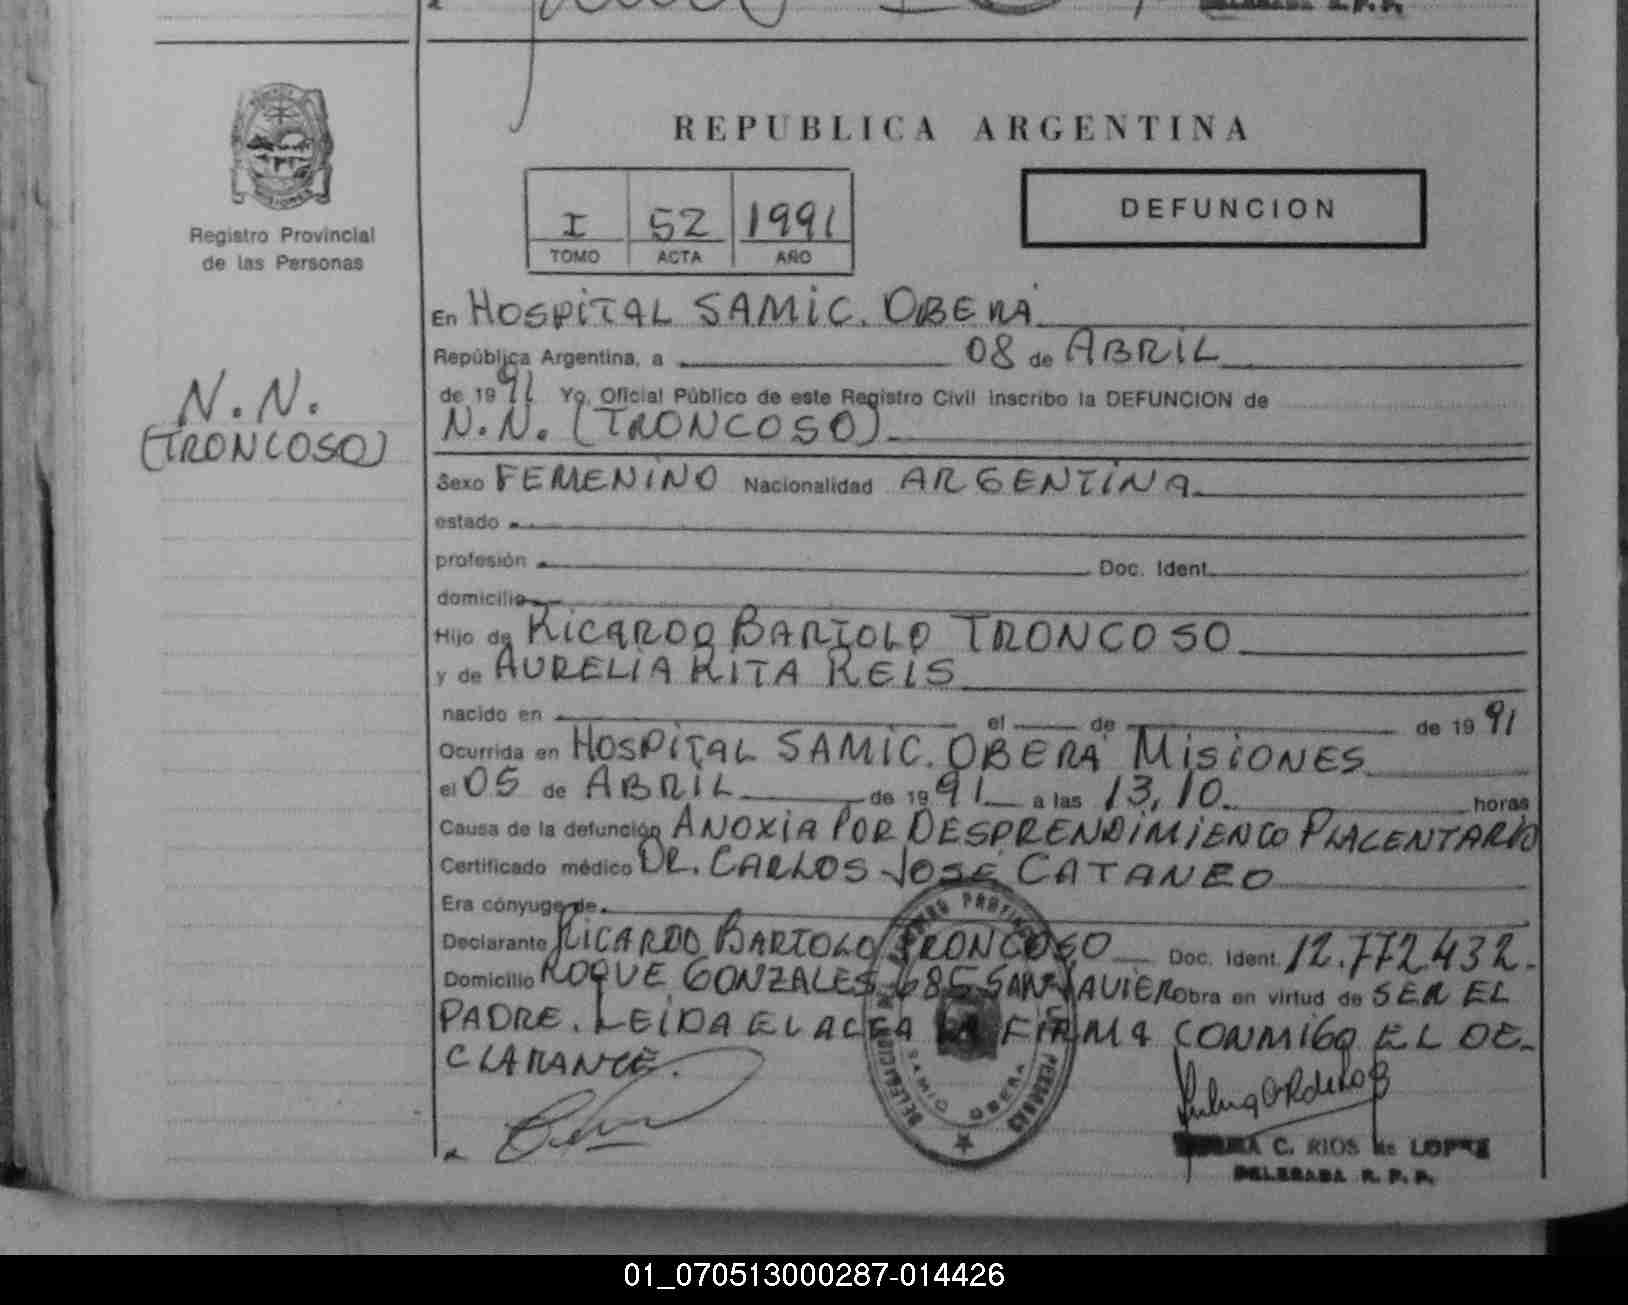 DELEGADA R.P.P.
REPUBLICA ARGENTINA
I 52 1991
TOMO ACTA AÑO
DEFUNCION
MISIONES
Registro Provincial
de las Personas
N.N.
(TRONCOSO)
En HOSPITAL SAMIC. OBERÁ
República Argentina, a 08 de ABRIL
de 1991 Yo, Oficial Público de este Registro Civil inscribo la DEFUNCION de
N.N. (TRONCOSO).
Sexo FEMENINO Nacionalidad ARGENTINA
estado
profesión Doc. Ident.
domicilio
Hijo de RICARDO BARTOLO TRONCOSO
y de AURELIA RITA REIS
nacido en el de de 1991
Ocurrida en HOSPITAL SAMIC. OBERÁ MISIONES
el 05 de ABRIL de 1991 a las 13,10 horas
Causa de la defunción ANOXIA POR DESPRENDIMIENTO PLACENTARIO
Certificado médico DR. CARLOS JOSÉ CATANEO
Era cónyuge de
Declarante RICARDO BARTOLO TRONCOSO Doc. Ident. 12.772.432.
Domicilio ROQUE GONZALES 685 SAN JAVIER obra en virtud de SER EL
PADRE. LEIDA EL ACTA LA FIRMA CONMIGO EL DE-
CLARANTE.
SAMIC OBERA
C. RIOS de LOPEZ
DELEGADA R.P.P.
01_070513000287-014426